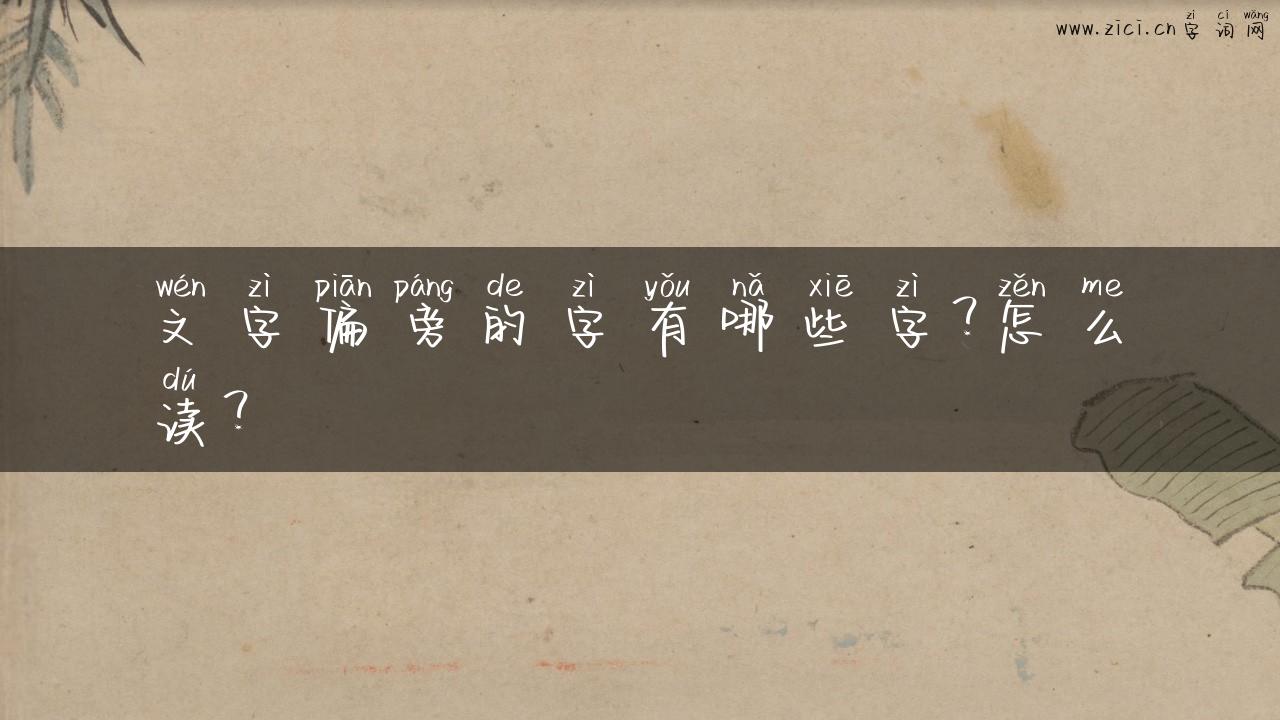 zì cí wǎng
www.zici.cn 字词网
wén zì piān páng de zì yǒu nǎ xiē zì zěn me
文字偏旁的字有哪些字?怎么
dú
读?